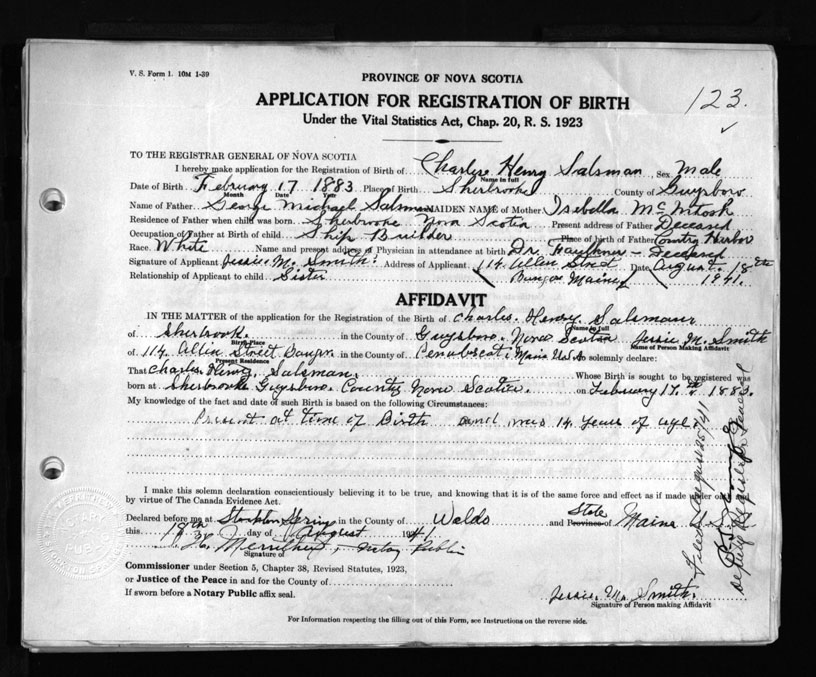 V. S. Form 1. 10M 1-39
PROVINCE OF NOVA SCOTIA
APPLICATION FOR REGISTRATION OF BIRTH
123.
Under the Vital Statistics Act, Chap. 20, R. S. 1923
TO THE REGISTRAR GENERAL OF NOVA SCOTIA
I hereby make application for the Registration of Birth of Charles Henry Salsman Sex Male
Name in full
Date of Birth February 17 1883 Place of Birth Sherbrooke County of Guysboro
Month Date Year
Name of Father George Michael Salsman MAIDEN NAME of Mother Isebella McIntosh
Residence of Father when child was born Sherbrooke Nova Scotia Present address of Father Deceased
Occupation of Father at Birth of child Ship Builder Place of birth of Father Country Harbor
Race White Name and present address of Physician in attendance at birth Dr. Faulkner - Deceased
Signature of Applicant Jessie M. Smith Address of Applicant 114 Allen Street Date August 18th
Relationship of Applicant to child Sister Bangor Maine 1941.
AFFIDAVIT
IN THE MATTER of the application for the Registration of the Birth of Charles Henry Salsman
Name in full
of Sherbrook in the County of Guysboro Nova Scotia Jessie M. Smith
Birth Place Name of Person Making Affidavit
of 114 Allen Street Bangor in the County of Penubscot, Maine U.S.A. solemnly declare:
Present Residence
That Charles Henry Salsman. Whose Birth is sought to be registered was
born at Sherbrooke Guysboro County Nova Scotia on February 17th 1883.
My knowledge of the fact and date of such Birth is based on the following Circumstances:
Present at time of Birth and was 14 years of age.
I make this solemn declaration conscientiously believing it to be true, and knowing that it is of the same force and effect as if made under oath
by virtue of The Canada Evidence Act.
Declared before me at Stockton Springs in the County of Waldo and Province of State Maine
this 18th day of August 1941
Notary Public
Signature of
Commissioner under Section 5, Chapter 38, Revised Statutes, 1923,
or Justice of the Peace in and for the County of
If sworn before a Notary Public affix seal.
Jessie M. Smith.
Signature of Person making Affidavit
For Information respecting the filling out of this Form, see Instructions on the reverse side.
Filed August 25/41
Deputy Registrar General